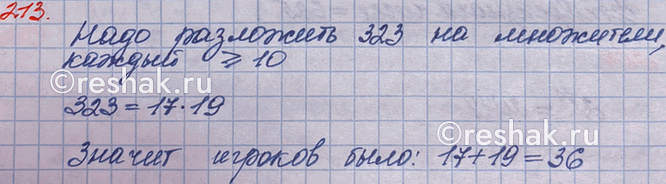 213.
Надо разложить 323 на множители,
каждый ⩾ 10
323 = 17 · 19
Значит игроков было: 17 + 19 = 36
Reshak.ru